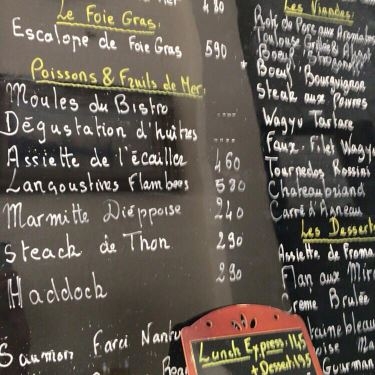 480
Le Foie Gras
Escalope de Foie Gras 590
Poissons & Fruits de Mer
Moules du Bistro ....
Dégustation d'huitres ....
Assiette de l'écailler 460
Langoustines Flambées 580
Marmitte Dieppoise 240
Steack de Thon 290
Haddock 290
Saumon Farci Nantu
Les Viandes
Roti de Porc aux Aromates
Toulouse Grillée &
Boeuf
* Boeuf Bourguignon
Steak aux Poivres
Wagyu Tartare
Faux-Filet Wagyu
Tournedos Rossini
Chateaubriand
Carré d'Agneau
Les Desserts
Assiette de Froma
Flan aux Mir
Creme Brulée
ainebleau
oise Ma
Gourman
Lunch Express: 145
+ Dessert: 195